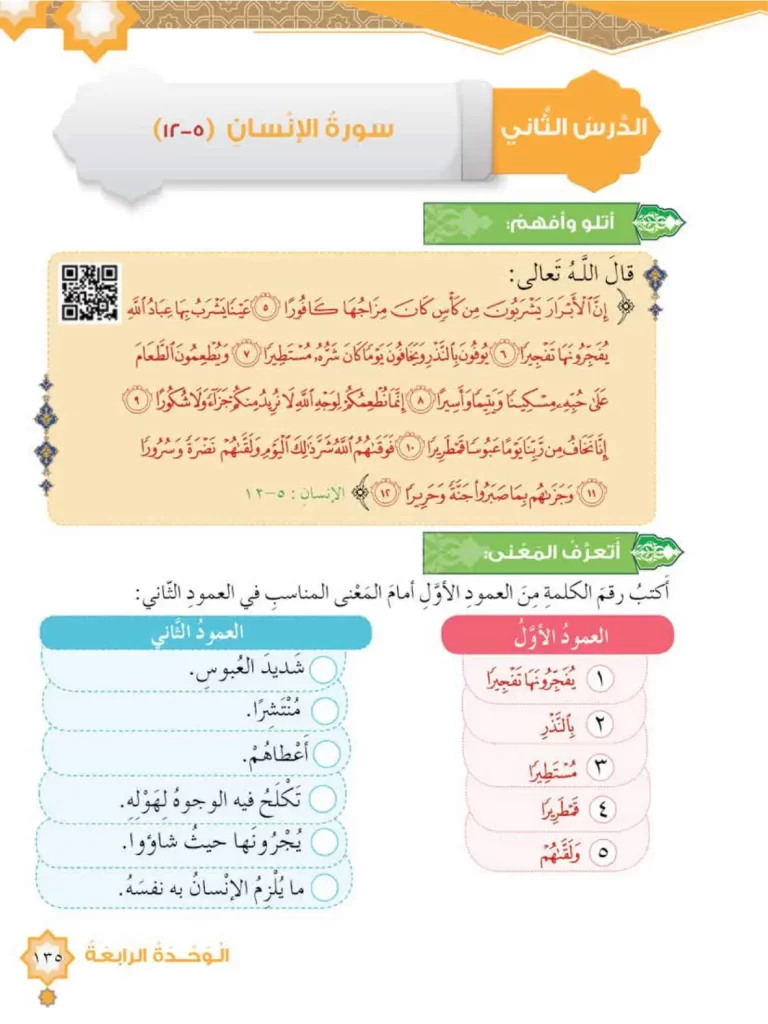 الدَّرسُ الثَّاني
سورةُ الإنْسانِ (٥-١٢)
أتلو وأفهمُ:
قالَ اللَّهُ تَعالى:
﴿ إِنَّ ٱلۡأَبۡرَارَ يَشۡرَبُونَ مِن كَأۡسٖ كَانَ مِزَاجُهَا كَافُورًا ٥ عَيۡنٗا يَشۡرَبُ بِهَا عِبَادُ ٱللَّهِ
يُفَجِّرُونَهَا تَفۡجِيرٗا ٦ يُوفُونَ بِٱلنَّذۡرِ وَيَخَافُونَ يَوۡمٗا كَانَ شَرُّهُۥ مُسۡتَطِيرٗا ٧ وَيُطۡعِمُونَ ٱلطَّعَامَ
عَلَىٰ حُبِّهِۦ مِسۡكِينٗا وَيَتِيمٗا وَأَسِيرًا ٨ إِنَّمَا نُطۡعِمُكُمۡ لِوَجۡهِ ٱللَّهِ لَا نُرِيدُ مِنكُمۡ جَزَآءٗ وَلَا شُكُورًا ٩
إِنَّا نَخَافُ مِن رَّبِّنَا يَوۡمًا عَبُوسٗا قَمۡطَرِيرٗا ١٠ فَوَقَىٰهُمُ ٱللَّهُ شَرَّ ذَٰلِكَ ٱلۡيَوۡمِ وَلَقَّىٰهُمۡ نَضۡرَةٗ وَسُرُورٗا
١١ وَجَزَىٰهُم بِمَا صَبَرُواْ جَنَّةٗ وَحَرِيرٗا ١٢ ﴾ الإنْسانِ: ٥-١٢
أَتعرَّفُ المَعْنى:
أَكتبُ رقمَ الكلمةِ مِنَ العمودِ الأوَّلِ أمامَ المَعْنى المناسبِ في العمودِ الثّاني:
العمودُ الأوَّلُ
١ يُفَجِّرُونَهَا تَفۡجِيرٗا
٢ بِٱلنَّذۡرِ
٣ مُسۡتَطِيرٗا
٤ قَمۡطَرِيرٗا
٥ وَلَقَّىٰهُمۡ
العمودُ الثَّاني
شَديدَ العُبوسِ.
مُنْتَشِرًا.
أَعْطاهُمْ.
تَكْلَحُ فيه الوجوهُ لِهَوْلِهِ.
يُجْرُونَها حيثُ شاؤوا.
ما يُلْزِمُ الإنْسانُ به نفسَهُ.
الْوَحْدَةُ الرابعَةُ
١٣٥